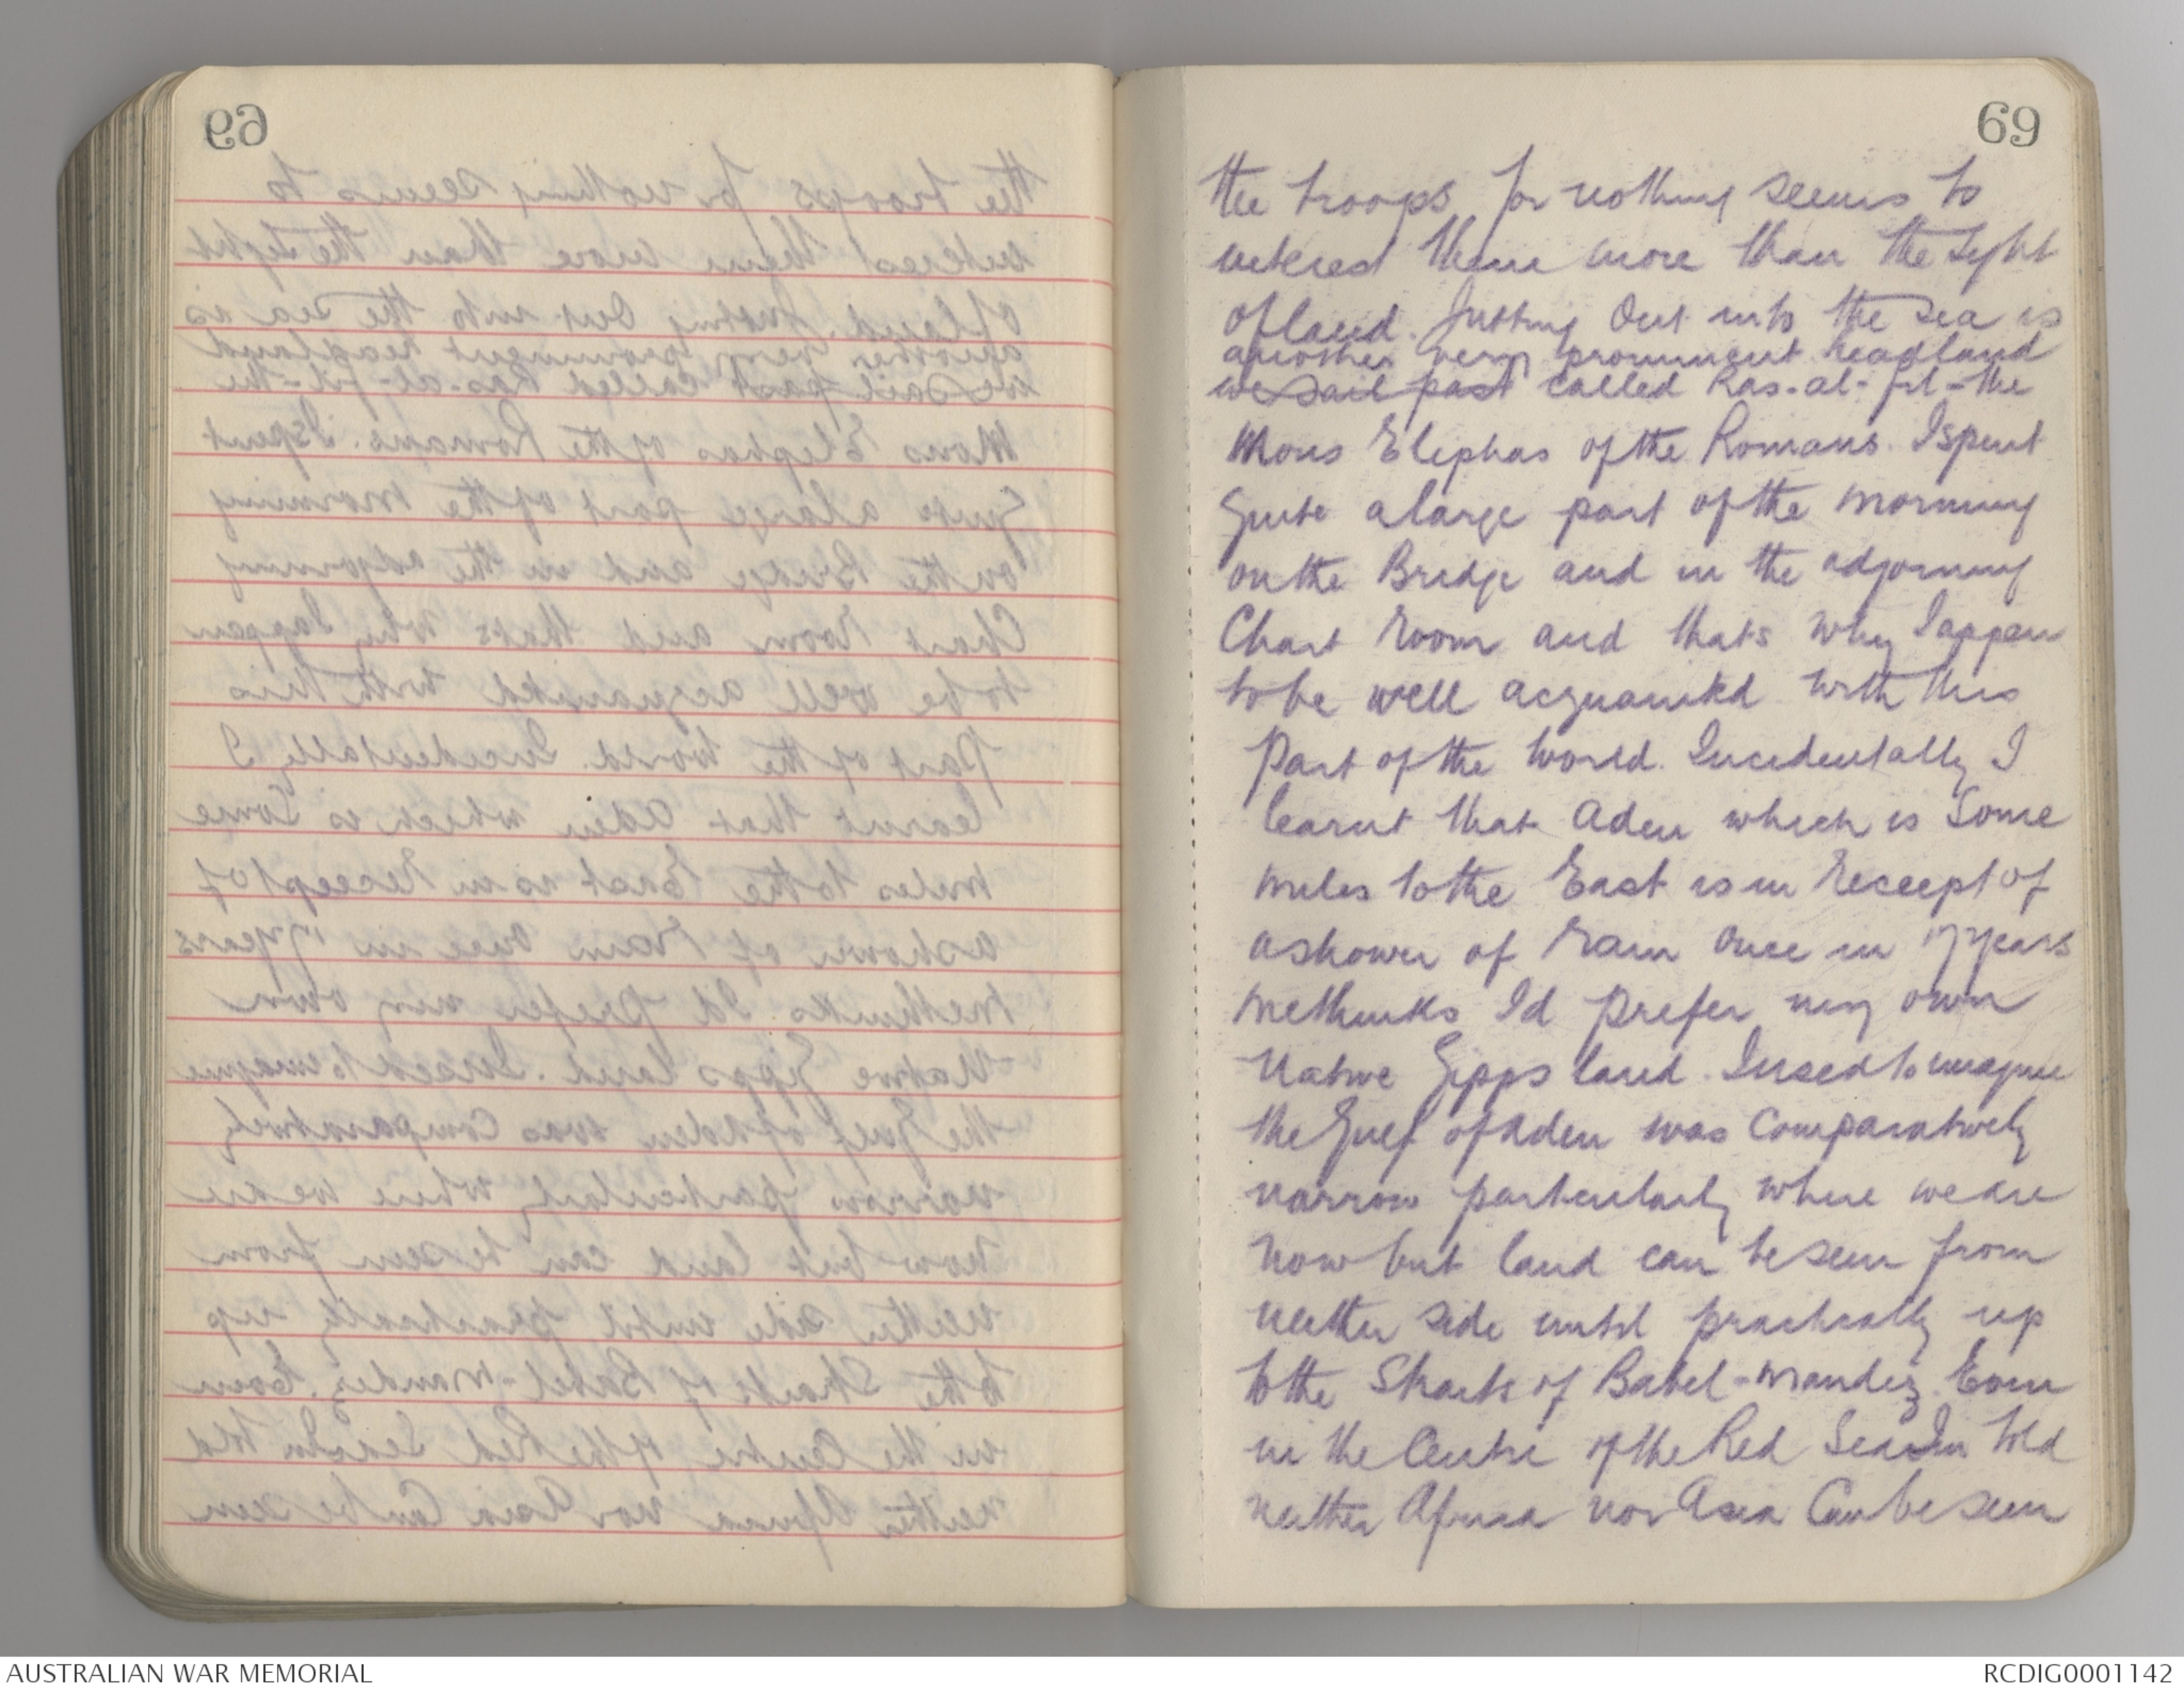 69
the troops for nothing seems to
interest them more than the sight
of land. Jutting Out into the Sea is
another very prominent headland
we sail past called Ras-al-fil-the
Mons Elephas of the Romans. I spent
Quite a large part of the morning
on the Bridge and in the adjoining
Chart Room and thats why I appear
to be well acquainted with this
Part of the World. Incidentally I
learnt that Aden which is Some
miles to the East is in Receipt of
a shower of Rain Once in 17 years
Methinks Id prefer my own
Native Gippsland. I used to imagine
the Gulf of Aden was Comparatively
narrow particularly where we are
now but land can be seen from
neither side until practically up
to the Straits of Babel-Mandez. Even
in the Centre of the Red Sea Im told
neither Africa nor Asia Can be seen
AUSTRALIAN WAR MEMORIAL
RCDIG0001142